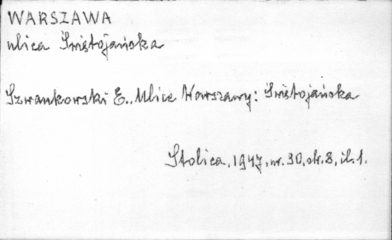 WARSZAWA
ulica Świętojańska
Szwankowski E., Ulice Warszawy: Świętojańska
Stolica, 1947, nr. 30, str. 8, il. 1.